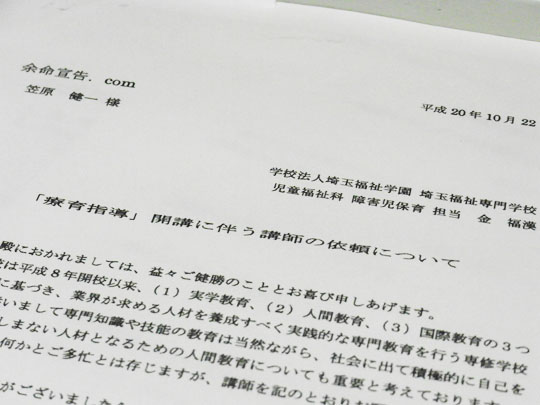 余命宣告. com
笠原 健一 様
平成20年10月22
学校法人埼玉福祉学園 埼玉福祉専門学校
児童福祉科 障害児保育 担当 金 福漢
「療育指導」開講に伴う講師の依頼について
殿におかれましては、益々ご健勝のこととお喜び申しあげます。
は平成8年開校以来、(1) 実学教育、(2) 人間教育、(3) 国際教育の3つ
に基づき、業界が求める人材を養成すべく実践的な専門教育を行う専修学校
いまして専門知識や技能の教育は当然ながら、社会に出て積極的に自己を
しまない人材となるための人間教育についても重要と考えております
何かとご多忙とは存じますが、講師を記のとおりお
がございましたら